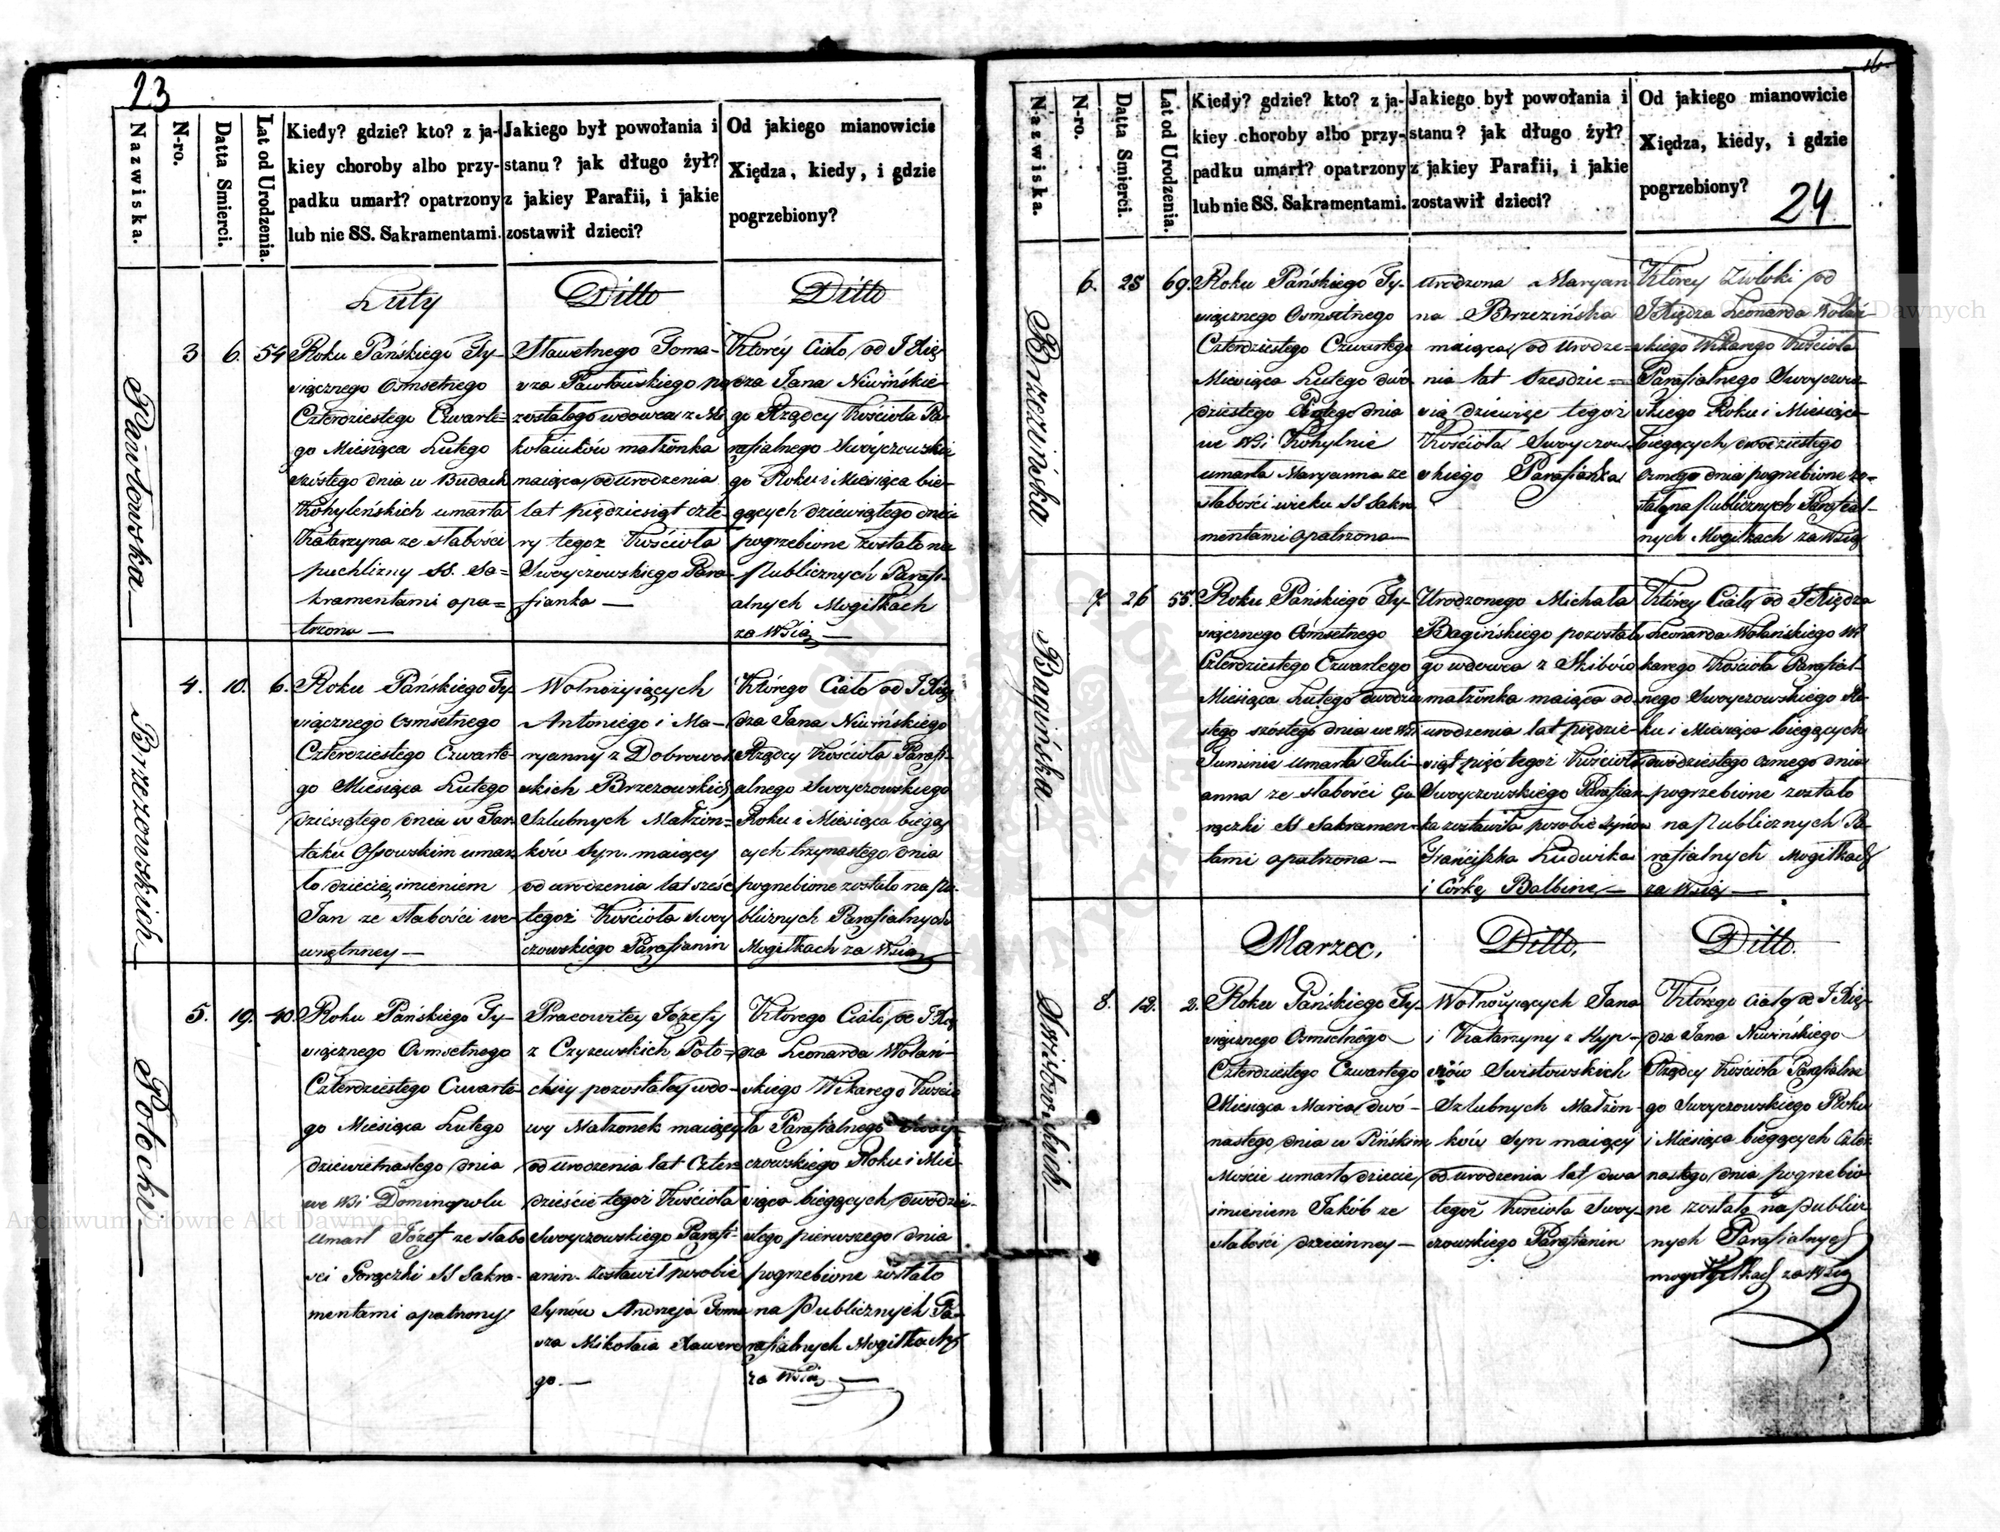 23
Nazwiska.
N-ro.
Datta Smierci.
Lat od Urodzenia.
Kiedy? gdzie? kto? z ja-
kiey choroby albo przy-
padku umarł? opatrzony
lub nie SS. Sakramentami.
Jakiego był powołania i
stanu? jak długo żył?
z jakiey Parafii, i jakie
zostawił dzieci?
Od jakiego mianowicie
Xiędza, kiedy, i gdzie
pogrzebiony?
Luty
Ditto
Ditto
Pawłowska
3
6.
54
Roku Pańskiego Ty-
siącznego Osmsetnego
Czterdziestego Czwarte-
go Miesiąca Lutego
szóstego dnia w Budach
Kohyleńskich umarła
Katarzyna ze słabości
puchlizny SS. Sa-
kramentami opa-
trzona
Sławetnego Toma-
sza Pawłowskiego po
zostałego wdowca z Mi
kołaiuków małżonka
maiąca od urodzenia
lat pięćdziesiąt czte-
ry tegoż Kościoła
Swoyczowskiego Para-
fianka
Którey Ciało od JXię
dza Jana Niwińskie
go Rządcy Kościoła Pa-
rafialnego Swoyczowskie
go Roku i Miesiąca bie-
gących dziewiątego dnia
pogrzebione zostało na
Publicznych Parafi-
alnych Mogiłkach
za Wsią
Brzezowskich
4.
10.
6.
Roku Pańskiego Ty
siącznego Osmsetnego
Czterdziestego Czwarte-
go Miesiąca Lutego
dziesiątego dnia w Tar-
taku Ossowskim umar
ło dziecię imieniem
Jan ze słabości we-
wnętrzney
Wolnożyiących
Antoniego i Ma-
ryanny z Dobrowol
skich Brzezowskich
Szlubnych Małżon-
ków Syn maiący
od urodzenia lat sześć
tegoż Kościoła Swoy
czowskiego Parafianin
Którego Ciało od JXię
dza Jana Niwińskiego
Rządcy Kościoła Parafi-
alnego Swoyczowskiego
Roku i Miesiąca biegą
cych trzynastego dnia
pogrzebione zostało na Pu-
blicznych Parafialnych
Mogiłkach za Wsią
Potocki
5.
19.
40.
Roku Pańskiego Ty-
siącznego Osmsetnego
Czterdziestego Czwarte
go Miesiąca Lutego
dziewietnastego dnia
we Wsi Dominopolu
umarł Józef ze słabo
sci Gorączki SS Sakra-
mentami opatrzony
Pracowitey Józefy
z Czyzewskich Poto-
ckiey pozostałey wdo-
wy Małzonek maiący
od urodzenia lat Czter
dzieście tegoż Kościoła
Swoyczowskiego Parafi-
anin zostawił po sobie
Synów Andrzeja Toma
sza Mikołaia Xawere
go.
Którego Ciało od JXię
dza Leonarda Wolań-
skiego Wikarego Kościo
ła Parafialnego Swoy-
czowskiego Roku i Mie-
siąca biegących dwódzie-
stego pierwszego dnia
pogrzebione zostało
na Publicznych Pa-
rafialnych Mogiłkach
za Wsią
16
Nazwiska.
N-ro.
Datta Smierci.
Lat od Urodzenia.
Kiedy? gdzie? kto? z ja-
kiey choroby albo przy-
padku umarł? opatrzony
lub nie SS. Sakramentami.
Jakiego był powołania i
stanu? jak długo żył?
z jakiey Parafii, i jakie
zostawił dzieci?
Od jakiego mianowicie
Xiędza, kiedy, i gdzie
pogrzebiony?
24
Brzezińska
6.
25
69.
Roku Pańskiego Ty-
siącznego Osmsetnego
Czterdziestego Czwartego
Miesiąca Lutego dwó
dziestego Piątego dnia
we Wsi Kohylnie
umarła Maryanna ze
słabości wieku SS Sakra
mentami opatrzona
urodzona Maryan
na Brzezińska
maiąca od Urodze-
nia lat szesdzie-
siąt dziewięć tegoż
Kościoła Swoyczow-
skiego Parafianka
Którey Zwłoki od
JXiędza Leonarda Wolań
skiego Wikarego Kościoła
Parafialnego Swoyczow
skiego Roku i Miesiąca
biegących dwódziestego
osmego dnia pogrzebione zo-
stały na Publicznych Parafial-
nych Mogiłkach za Wsią
Bagińska
7.
26
55.
Roku Pańskiego Ty-
siącznego Osmsetnego
Czterdziestego Czwartego
Miesiąca Lutego dwódzie
stego szóstego dnia we Wsi
Tuminie umarła Juli-
anna ze słabości Go
rączki SS Sakramen-
tami opatrzona
Urodzonego Michała
Bagińskiego pozostałe
go wdowca z Skibów
małżonka maiąca od
urodzenia lat pięćdzie-
siąt pięć tegoż Kościoła
Swoyczowskiego Parafian
ka zostawiła po sobie Synów
Franciszka Ludwika
i Córkę Balbinę
Którey Ciało od JXiędza
Leonarda Wolańskiego Wi
karego Kościoła Parafial-
nego Swoyczowskiego Ro-
ku i Miesiąca biegących
dwódziestego osmego dnia
pogrzebione zostało
na Publicznych Pa-
rafialnych Mogiłkach
za Wsią
Marzec.
Ditto.
Ditto.
8.
12.
2.
Roku Pańskiego Ty-
siącznego Osmsetnego
Czterdziestego Czwartego
Miesiąca Marca dwó-
nastego dnia w Pińskim
Moście umarło dziecie
imieniem Jakób ze
słabości dziecinney
Wolnożyiących Jana
i Katarzyny z Hyp-
siów Swistowskich
Szlubnych Małżon-
ków Syn maiący
od urodzenia lat dwa
tegoż Kościoła Swoy-
czowskiego Parafianin
Którego Ciało od JXię-
dza Jana Niwińskiego
Rządcy Kościoła Parafialne
go Swoyczowskiego Roku
i Miesiąca biegących Czter
nastego dnia pogrzebio
ne zostało na Publicz
nych Parafialnych
mogiłkach za Wsią
Archiwum Główne Akt Dawnych